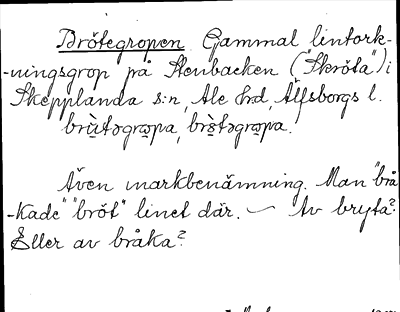 Brötegropen Gammal lintork-
-ningsgrop på Stenbacken ("Skröta") i
Skepplanda s:n, Ale hrd, Älfsborgs l.
brùtəgrɷpa, brötəgrɷpa.
Även markbenämning. Man "brå
-kade" "bröt" linet där. — Av bryta?
Eller av bråka?